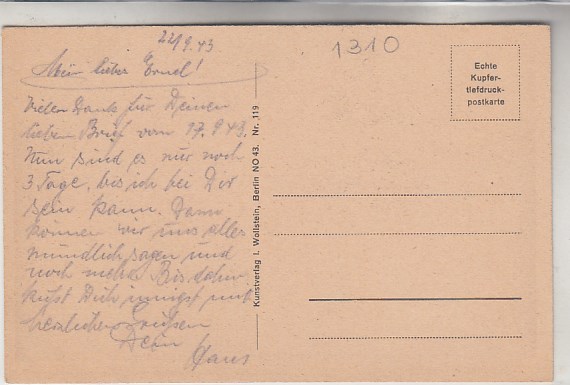 22/9.43
Mein lieber
Vielen Dank für Deinen
lieben Brief vom 17.9.43.
Nun sind es nur noch
3 Tage, bis ich bei Dir
sein kann. Dann
können wir uns alles
mündlich sagen und
noch mehr. Bis dahin
küßt Dich innigst mit
herzlichen Grüßen
Dein
Hans
Kunstverlag I. Wollstein, Berlin NO 43. Nr. 119
1310
Echte
Kupfer-
tiefdruck-
postkarte